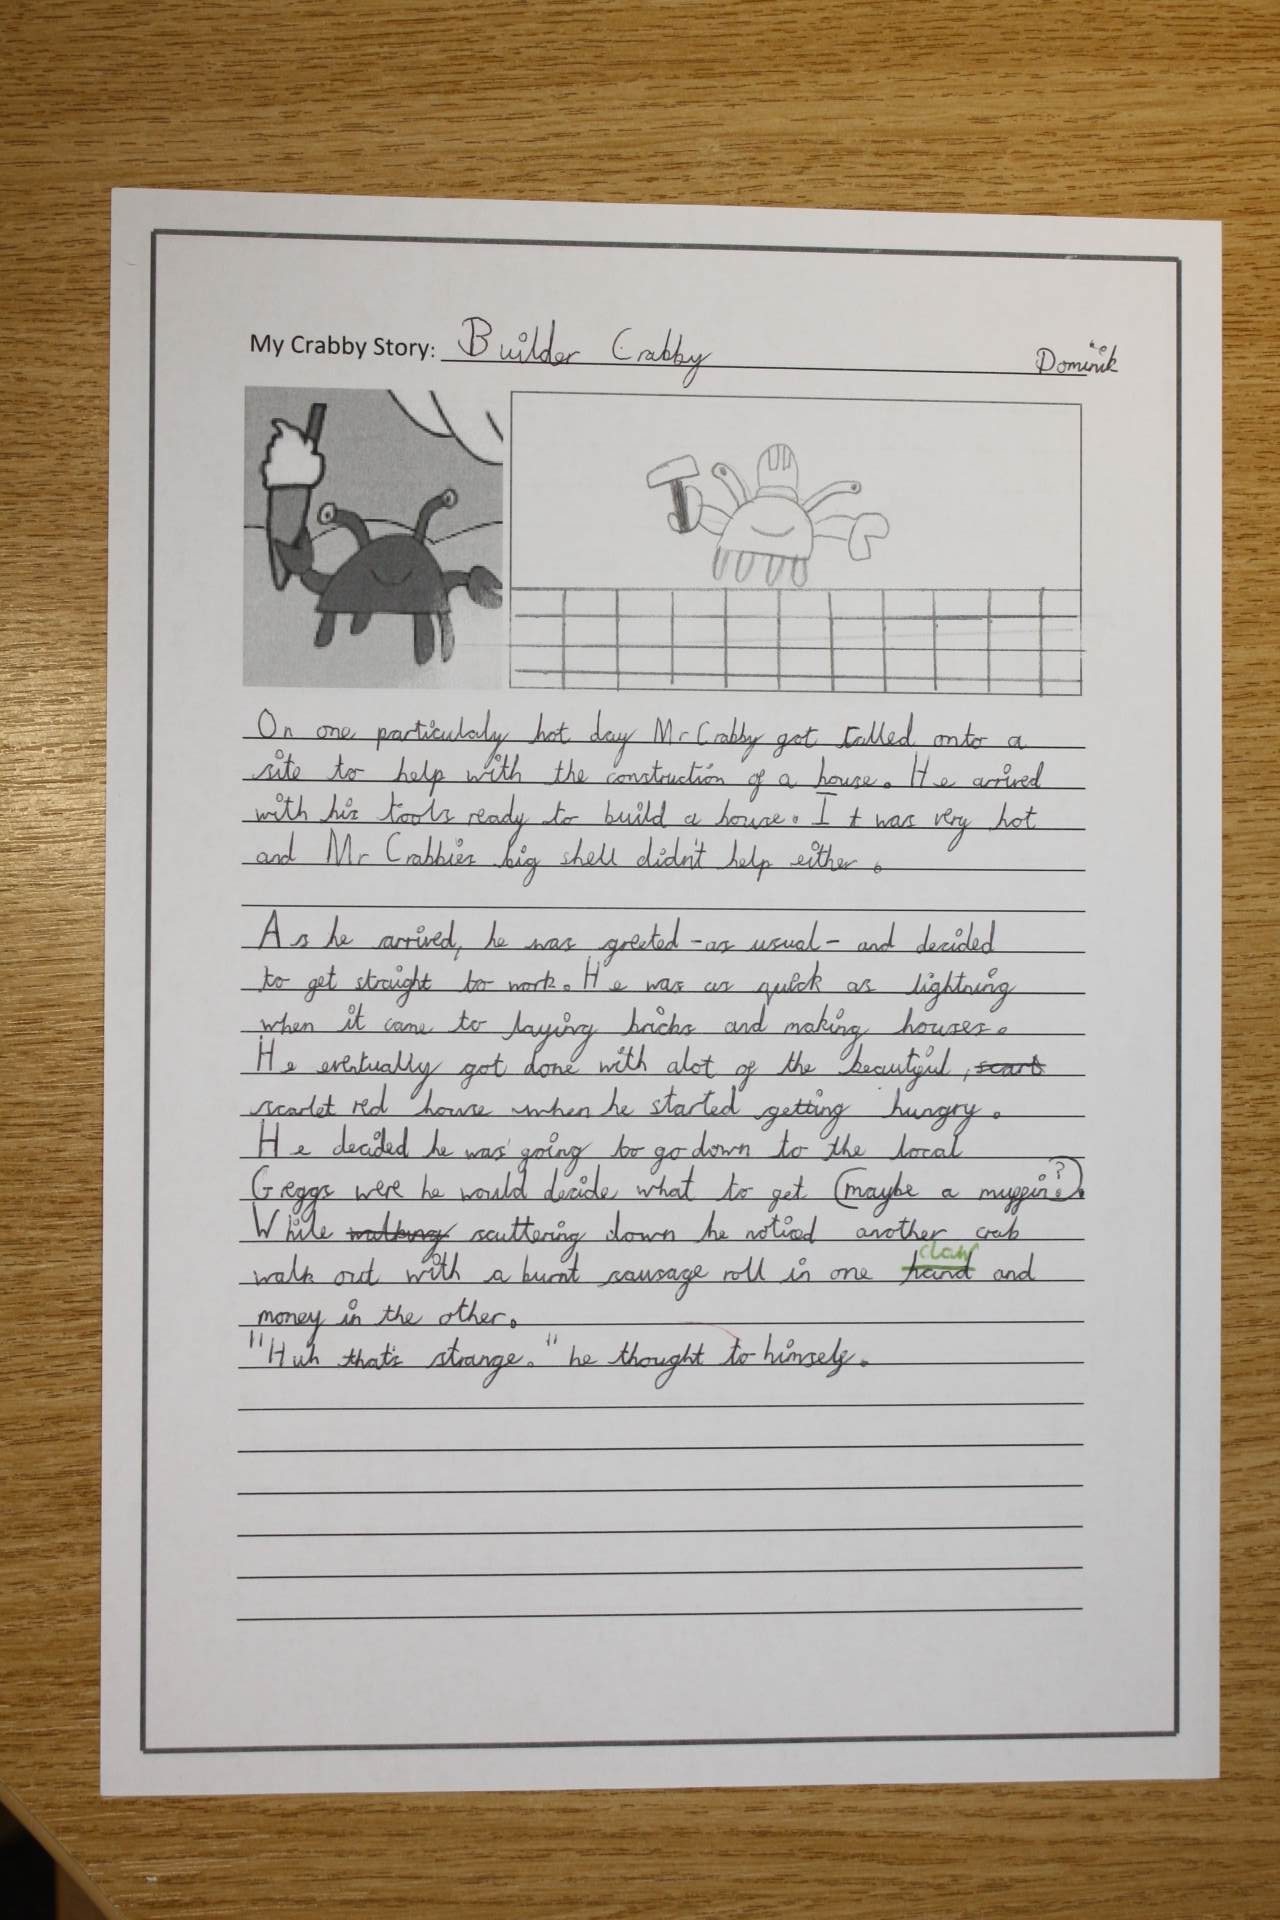 My Crabby Story: Builder Crabby
Dominik
On one particulaly hot day Mr Crabby got called onto a
site to help with the construction of a house. He arrived
with his tools ready to build a house. It was very hot
and Mr Crabbies big shell didn't help either.
As he arrived, he was greeted -as usual- and decided
to get straight to work. He was as quick as lightning
when it came to laying bricks and making houses.
He eventually got done with alot of the beautiful, scart
scarlet red house when he started getting hungry.
He decided he was going to go down to the local
Greggs were he would decide what to get (maybe a muffin?).
While walking scuttering down he noticed another crab
claw
walk out with a burnt sausage roll in one hand and
money in the other.
"Huh that's strange." he thought to himself.